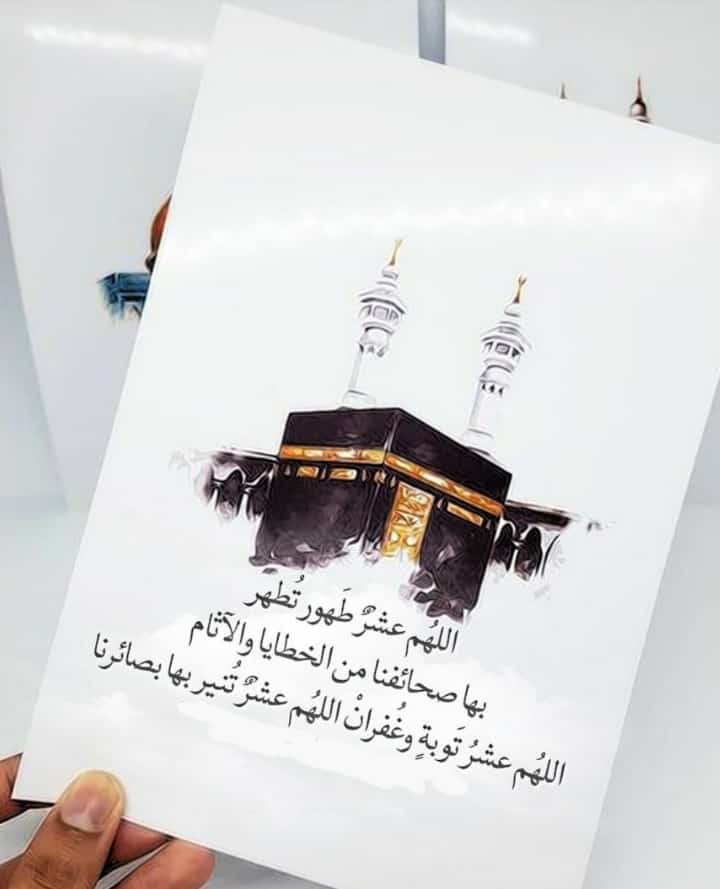 اللهُم عشرٌ طَهور تُطهر
بها صحائفنا من الخطايا والآثام
اللهُم عشرُ تَوبةٍ وغُفرانْ اللهُم عشرٌ تُنير بها بصائرنا